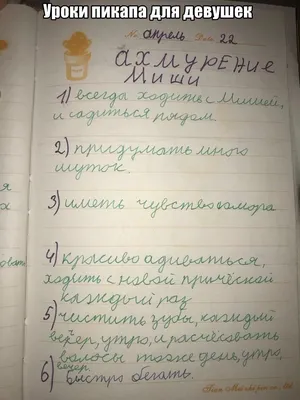 Уроки пикапа для девушек
No. апрель Date 22
Ахмурение
Миши
1) всегда ходить с Мишей,
и садиться рядом.
2) придумать много
шуток.
3) иметь чувство юмора
4) красиво адиваться,
ходить с новой причёской
каждый раз
5) чистить зубы, каждый
вечер, утро, и расчёсовать
волосы тоже день, утро,
вечер
6) быстро бегать.
я
х